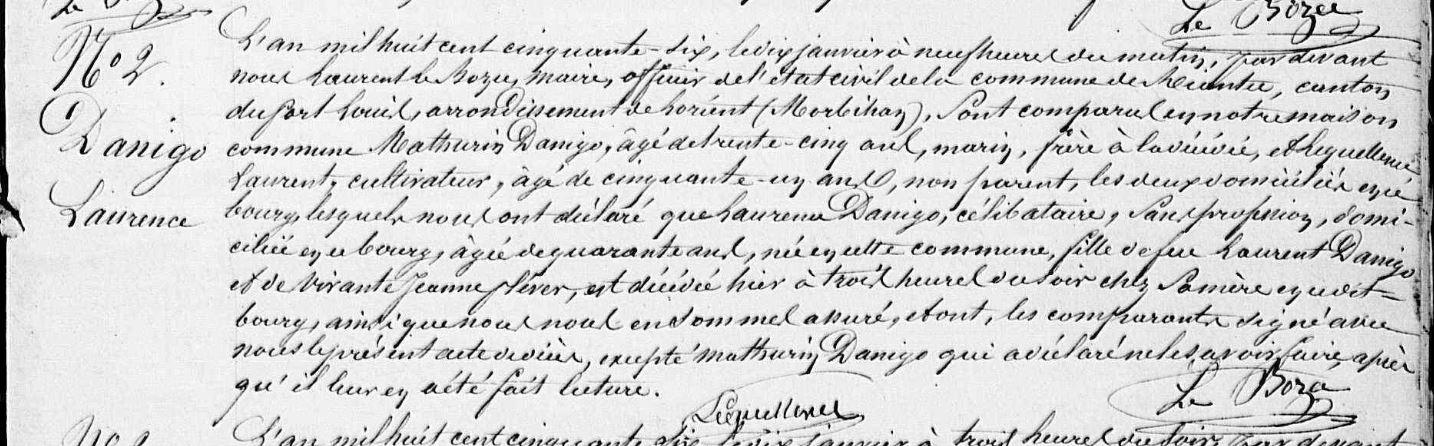 Le Bozec
N° 2.
Danigo
Laurence
L'an mil huit cent cinquante-six, le dix janvier à neuf heures du matin, par devant
nous Laurent le Bozec, Maire, officier de l'état civil de la commune de Riantec, canton
du Port Louis, arrondissement de Lorient (Morbihan), sont comparus en notre maison
commune Mathurin Danigo, âgé de trente-cinq ans, marin, frère à la décédée, et Lequellenec
Laurent, cultivateur, âgé de cinquante-un ans, non parent, les deux domiciliés en ce
bourg, lesquels nous ont déclaré que Laurence Danigo, célibataire, sans profession, domi-
ciliée en ce bourg, âgée de quarante ans, née en cette commune, fille de feu Laurent Danigo
et de vivante Jeanne, est décédée hier à trois heures du soir chez sa mère en ce dit-
bourg, ainsi que nous nous en sommes assuré, et ont, les comparants signé avec
nous le présent acte de décès, excepté Mathurin Danigo qui a déclaré ne le savoir faire, après
qu'il leur en a été fait lecture.
Lequellenec
Le Bozec
L'an mil huit cent cinquante six, le dix janvier à trois heures du soir, par devant